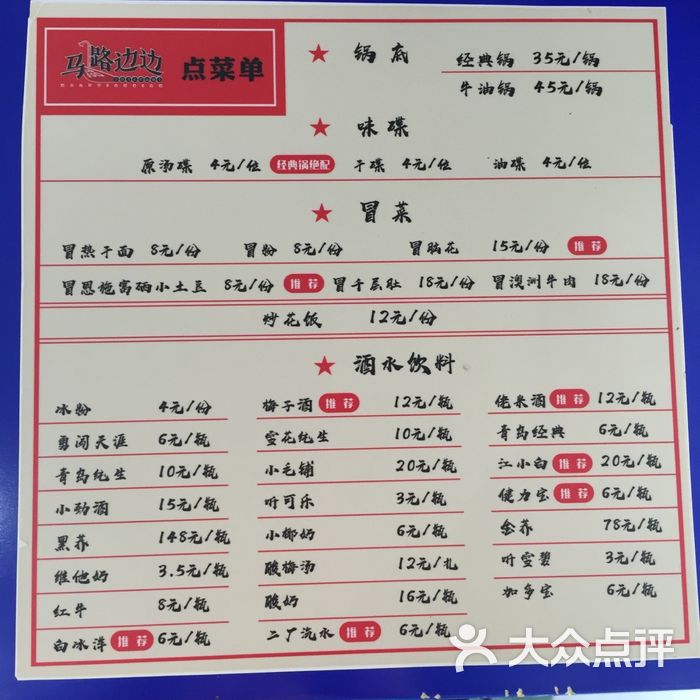 马路边边
点菜单
★ 锅底
经典锅 35元/锅
牛油锅 45元/锅
★ 味碟
原汤碟 4元/位 经典锅绝配 干碟 4元/位 油碟 4元/位
★ 冒菜
冒热干面 8元/份 冒粉 8元/份 冒脑花 15元/份 推荐
冒恩施富硒小土豆 8元/份 推荐 冒千层肚 18元/份 冒澳洲牛肉 18元/份
炒花饭 12元/份
★ 酒水饮料
冰粉 4元/份 梅子酒 推荐 12元/瓶 佬米酒 推荐 12元/瓶
勇闯天涯 6元/瓶 雪花纯生 10元/瓶 青岛经典 6元/瓶
青岛纯生 10元/瓶 小毛铺 20元/瓶 江小白 推荐 20元/瓶
小劲酒 15元/瓶 听可乐 3元/瓶 健力宝 推荐 6元/瓶
黑荞 148元/瓶 小椰奶 6元/瓶 金荞 78元/瓶
维他奶 3.5元/瓶 酸梅汤 12元/扎 听雪碧 3元/瓶
红牛 8元/瓶 酸奶 16元/瓶 加多宝 6元/瓶
白冰洋 推荐 6元/瓶 二厂汽水 推荐 6元/瓶
大众点评